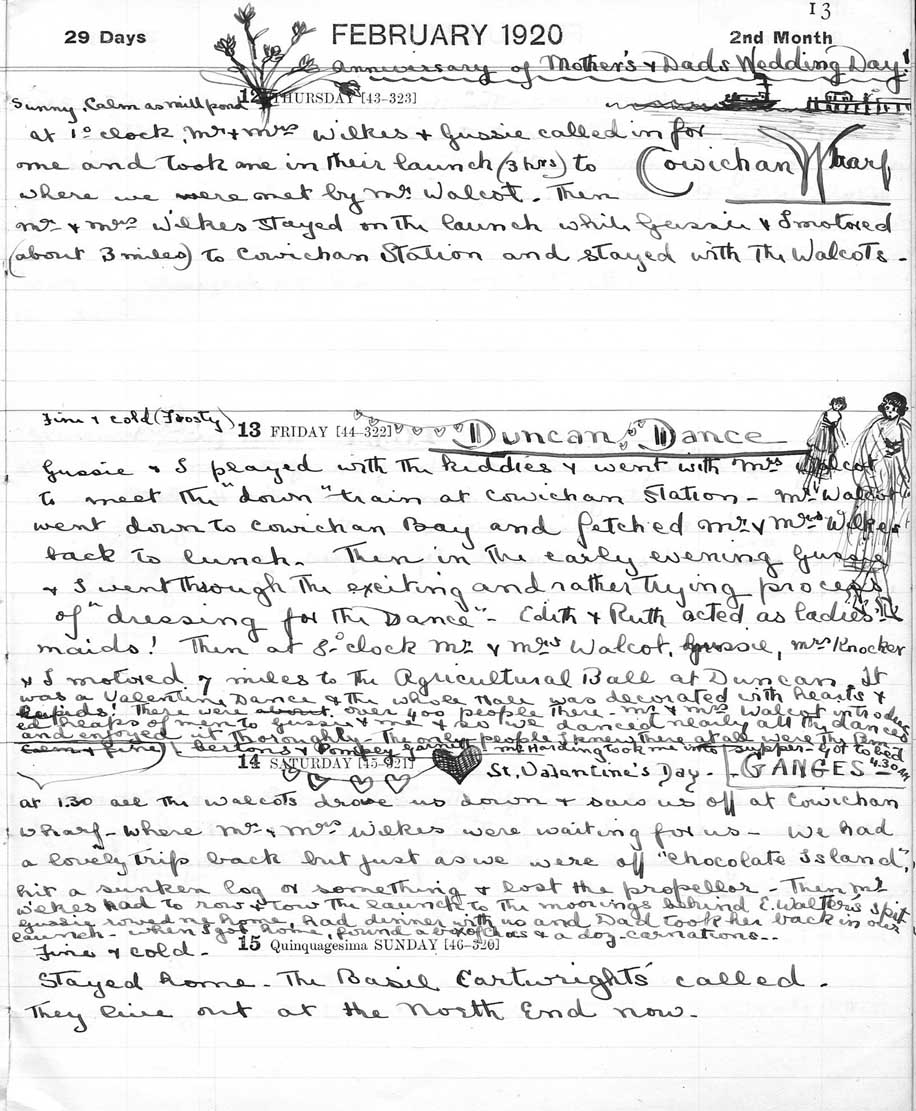 13
29 Days FEBRUARY 1920 2nd Month
Anniversary of Mother's & Dads Wedding Day!
Sunny. Calm as mill pond 12 THURSDAY [43-323]
at 1º clock, Mr & Mrs Wilkes & Gussie called in for
me and took me in their launch (3 hrs) to Cowichan Wharf
where we were met by Mr Walcot. Then
Mr & Mrs Wilkes stayed on the launch while Gussie & I motored
(about 3 miles) to Cowichan Station and stayed with the Walcots -
Fine & cold (Frosty) 13 FRIDAY [44-322] Duncan Dance
Gussie & I played with the kiddies & went with Mrs Walcot
to meet the "down" train at Cowichan Station - Mr Walcot
went down to Cowichan Bay and fetched Mr & Mrs Wilkes
back to lunch. Then in the early evening Gussie
& I went through the exciting and rather trying process
of "dressing for the Dance" - Edith & Ruth acted as ladies'
maids! Then at 8-º clock Mr & Mrs Walcot, Gussie, Mrs Knocker
& I motored 7 miles to the Agricultural Ball at Duncan. It
was a Valentine Dance & the whole Hall was decorated with hearts &
Cupids! There were about over 400 people there - Mr & Mrs Walcot introduc
ed heaps of men to Gussie & me & so we danced nearly all the dances
and enjoyed it thoroughly - The only people I knew there at all were the Pem
Calm & fine) bertons & Pompey Garnett Mr Harding took me into supper - Got to bed
4.30 AM
14 SATURDAY [45-321] St. Valentine's Day - GANGES -
at 1.30 all the Walcots drove us down & saw us off at Cowichan
Wharf - where Mr & Mrs Wilkes were waiting for us - We had
a lovely trip back but just as we were off "Chocolate Island",
hit a sunken log or something & lost the propellor - Then Mr
Wilkes had to row & tow the launch to the moorings behind E. Walter's spit
Gussie rowed me home, had dinner with us and Dad took her back in our
launch - when I got home, found a box of chocs & a doz. carnations..
15 Quinquagesima SUNDAY [46-320]
Fine & cold -
Stayed home - The Basil Cartwrights' called.
They live out at the North End now.